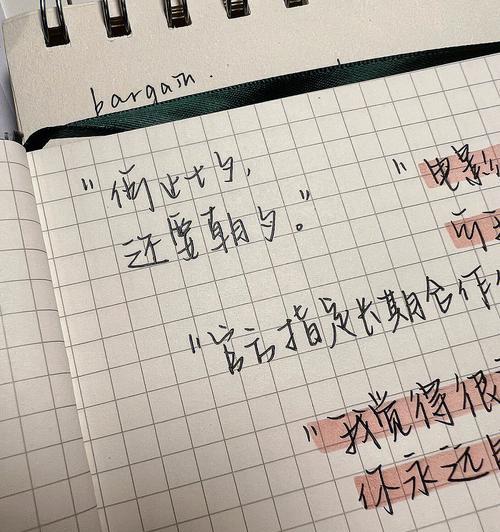 bargain.
"倒过七夕,
还要朝夕。"
"电影
"官方指定长期合作
"我觉得很
你永远